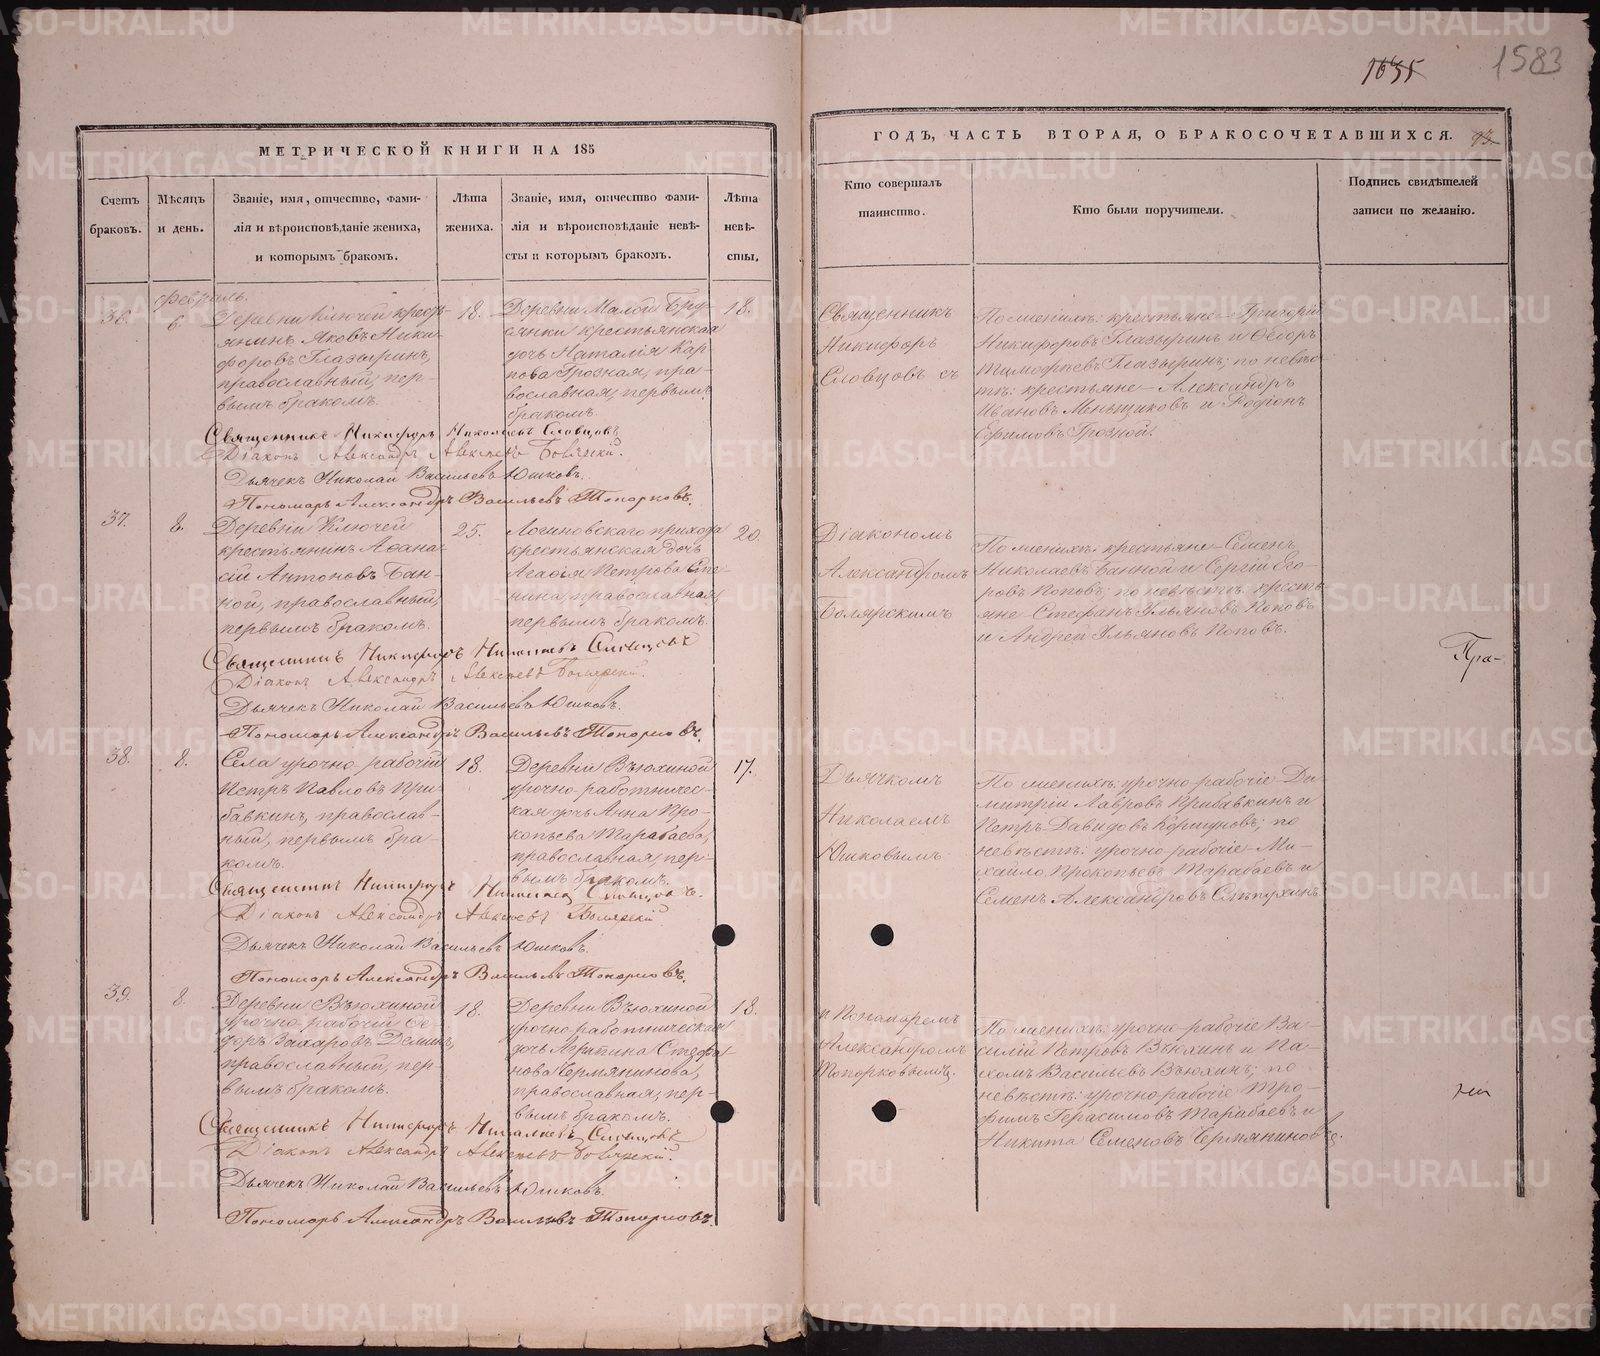 1583
МЕТРИЧЕСКОЙ КНИГИ НА 185
ГОДЪ, ЧАСТЬ ВТОРАЯ, О БРАКОСОЧЕТАВШИХСЯ.
Счетъ браковъ.
Мѣсяцъ и день.
Званіе, имя, отчество, фами-
лія и вѣроисповѣданіе жениха,
и которымъ бракомъ.
Лѣта
жениха.
Званіе, имя, отчество фами-
лія и вѣроисповѣданіе невѣ-
сты и которымъ бракомъ.
Лѣта
невѣ-
сты.
Кто совершалъ
таинство.
Кто были поручители.
Подпись свидѣтелей
записи по желанію.
Февраль.
36.
6.
Деревни Ключей кресть-
янинъ Яковъ Ники-
форовъ Глазыринъ,
православный, пер-
вымъ бракомъ.
18.
Деревни Малой Бру-
сянки крестьянская
дочь Наталія Кар-
пова Грозная, пра-
вославная, первымъ
бракомъ.
18.
Священникъ
Никифоръ
Словцовъ съ
По женихѣ: крестьяне Григорій
Никифоровъ Глазыринъ и Ѳедоръ
Тимофѣевъ Глазыринъ; по невѣс-
тѣ: крестьяне Александръ
Ивановъ Меньщиковъ и Родіонъ
Ефимовъ Грозной.
Священникъ Никифоръ Николаевъ Словцовъ
Діаконъ Александръ Алексѣевъ Боярскій.
Дьячекъ Николай Васильевъ Юшковъ.
Пономарь Александръ Васильевъ Топорковъ.
37.
8.
Деревни Ключей
крестьянинъ Аѳана-
сій Антоновъ Бан-
ной, православный,
первымъ бракомъ.
25.
Логиновскаго прихода
крестьянская дочь
Агафія Петрова
православная,
первымъ бракомъ.
20.
Діакономъ
Александромъ
Болярскимъ
По женихѣ: крестьяне Семенъ
Николаевъ Банной и Сергій Его-
ровъ Поповъ; по невѣстѣ: кресть-
яне Стефанъ Ульяновъ Поповъ
и Андрей Ульяновъ Поповъ.
Священникъ Никифоръ Николаевъ Словцовъ
Діаконъ Александръ Алексѣевъ Болярскій.
Дьячекъ Николай Васильевъ Юшковъ.
Пономарь Александръ Васильевъ Топорковъ.
Пра-
38.
8.
Села урочно рабочій
Петръ Павловъ При-
бавкинъ, православ-
ный, первымъ бра-
комъ.
18.
Деревни Вьюхиной
урочно работничес-
кая дочь Анна Про-
копьева Тарабаева,
православная, пер-
вымъ бракомъ.
17.
Дьячкомъ
Николаемъ
Юшковымъ
По женихѣ: урочно рабочіе Ди-
митрій Лавровъ Прибавкинъ и
Петръ Давидовъ Коршуновъ; по
невѣстѣ: урочно рабочіе Ми-
хайло Прокопьевъ Тарабаевъ и
Семенъ Александровъ
Священникъ Никифоръ Николаевъ Словцовъ.
Діаконъ Александръ Алексѣевъ Болярскій
Дьячекъ Николай Васильевъ Юшковъ.
Пономарь Александръ Васильевъ Топорковъ.
39.
8.
Деревни Вьюхиной
урочно рабочій Ѳе-
доръ Захаровъ Деминъ,
православный, пер-
вымъ бракомъ.
18.
Деревни Вьюхиной
урочно работническая
дочь Агрипина Стефа-
нова Чермянинова,
православная, пер-
вымъ бракомъ.
18.
и Понамаремъ
Александромъ
Топорковымъ.
По женихѣ: урочно рабочіе Ва-
силій Петровъ Вьюхинъ и Па-
хомъ Васильевъ Вьюхинъ; по
невѣстѣ: урочно рабочіе Тро-
фимъ Герасимовъ Тарабаевъ и
Никита Семеновъ Чермяниновъ.
Священникъ Никифоръ Николаевъ Словцовъ
Діаконъ Александръ Алексѣевъ Болярскій.
Дьячекъ Николай Васильевъ Юшковъ.
Пономарь Александръ Васильевъ Топорковъ.
METRIKI.GASO-URAL.RU